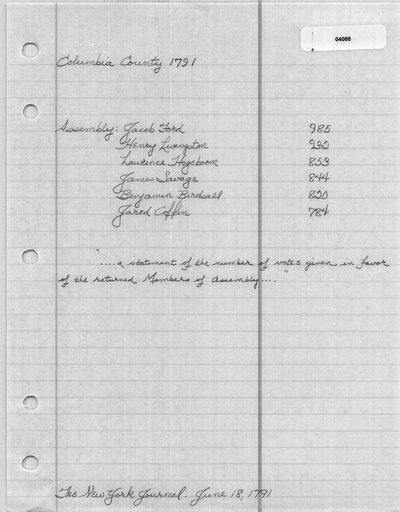 04085
Columbia County 1791
Assembly: Jacob Ford 985
Henry Livingston
Laurence Hogeboom 853
James Savage 844
Benjamin Birdsall 820
Jared Coffin 784
"....a statement of the number of votes given in favor
of the returned Members of Assembly...."
The New York Journal. June 18, 1791